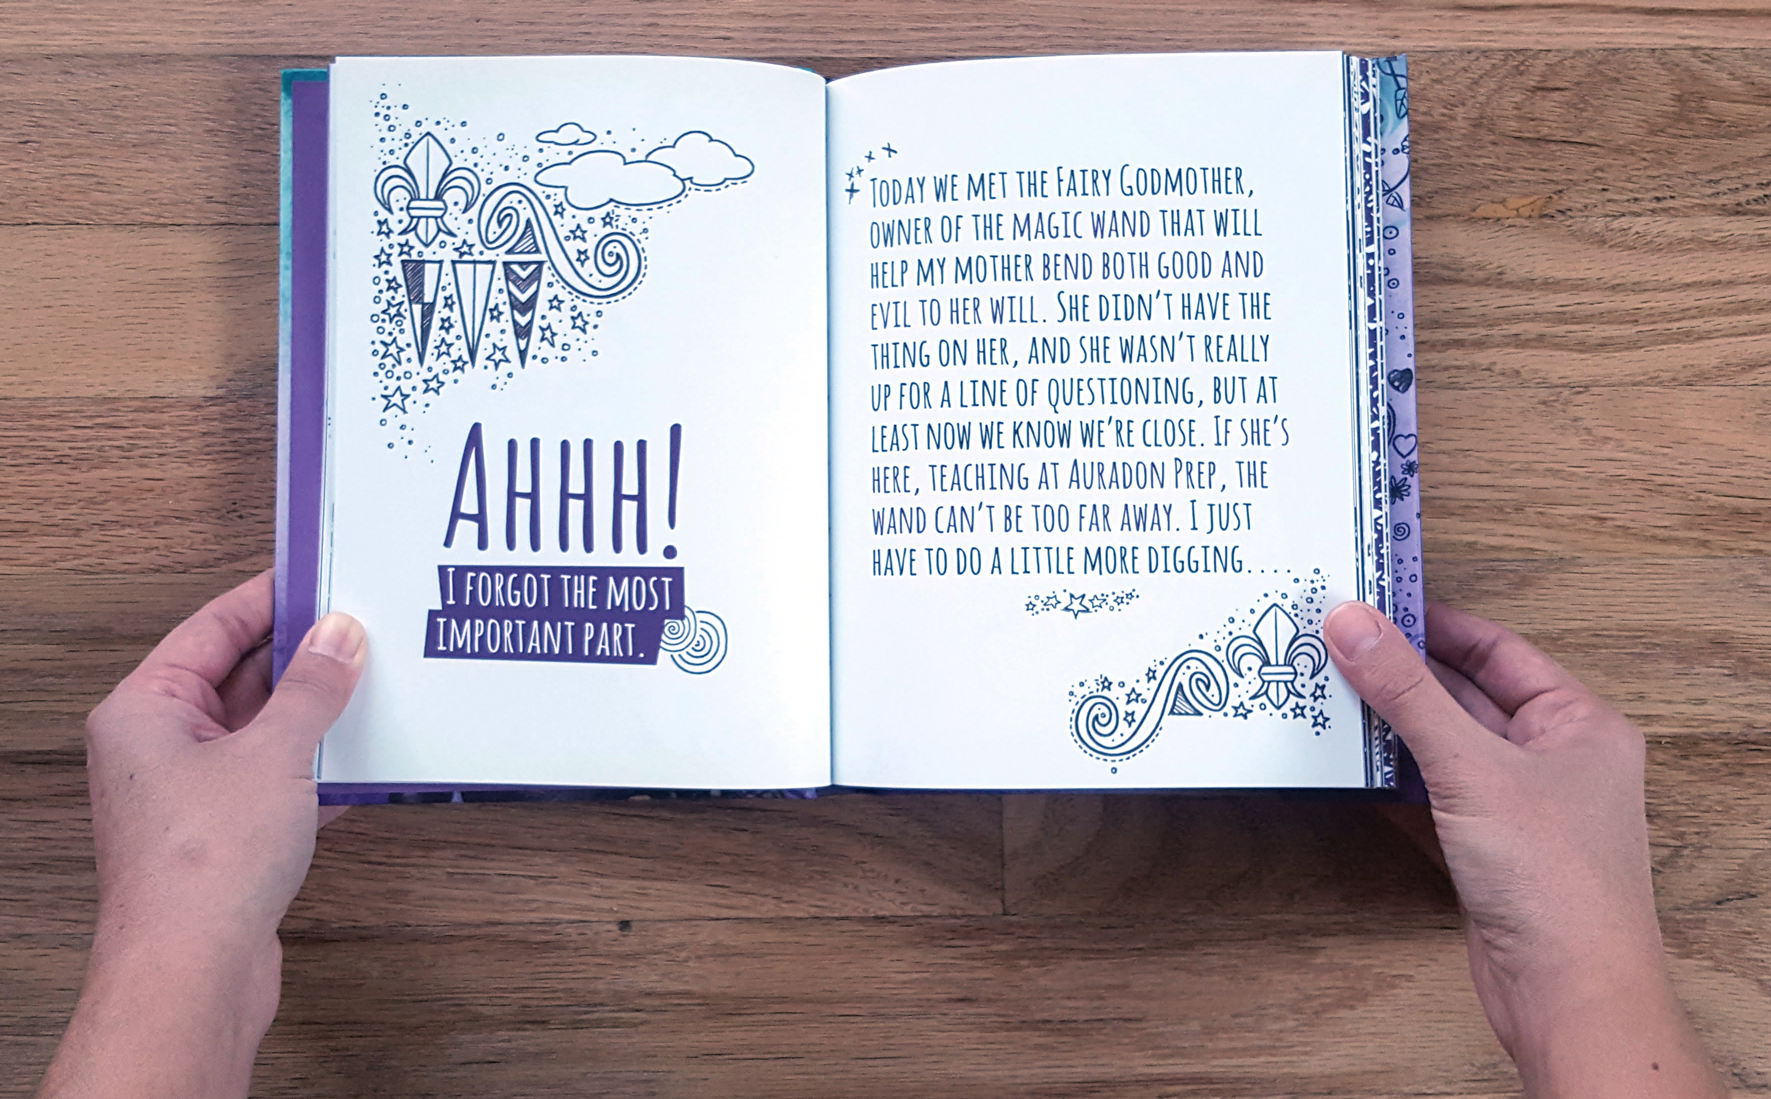 AHHH!
I FORGOT THE MOST
IMPORTANT PART.
TODAY WE MET THE FAIRY GODMOTHER,
OWNER OF THE MAGIC WAND THAT WILL
HELP MY MOTHER BEND BOTH GOOD AND
EVIL TO HER WILL. SHE DIDN'T HAVE THE
THING ON HER, AND SHE WASN'T REALLY
UP FOR A LINE OF QUESTIONING, BUT AT
LEAST NOW WE KNOW WE'RE CLOSE. IF SHE'S
HERE, TEACHING AT AURADON PREP, THE
WAND CAN'T BE TOO FAR AWAY. I JUST
HAVE TO DO A LITTLE MORE DIGGING....